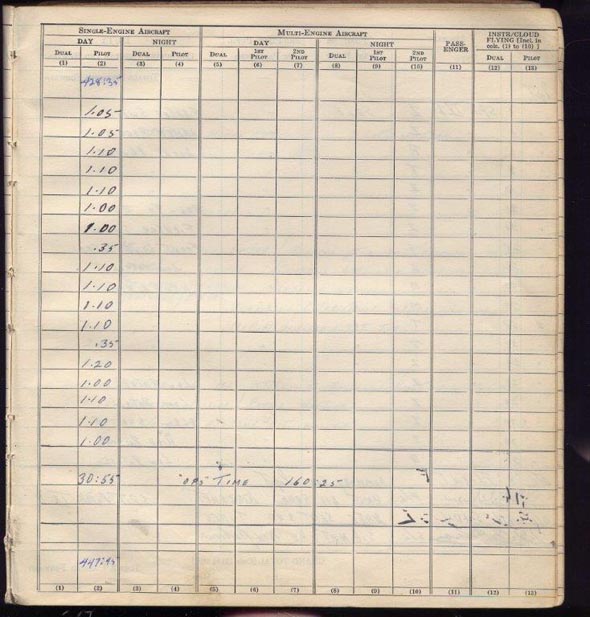 SINGLE-ENGINE AIRCRAFT MULTI-ENGINE AIRCRAFT PASS-ENGER INSTR/CLOUD FLYING [Incl. in cols. (1) to (10) ]
DAY NIGHT DAY NIGHT
DUAL PILOT DUAL PILOT DUAL 1ST PILOT 2ND PILOT DUAL 1ST PILOT 2ND PILOT DUAL PILOT
(1) (2) (3) (4) (5) (6) (7) (8) (9) (10) (11) (12) (13)
428:35
1.05
1.05
1.10
1.10
1.10
1.00
1.00
.35
1.10
1.10
1.10
1.10
.35
1.20
1.00
1.10
1.10
1.00
30:55 OPS TIME 160:25
447:45
(1) (2) (3) (4) (5) (6) (7) (8) (9) (10) (11) (12) (13)